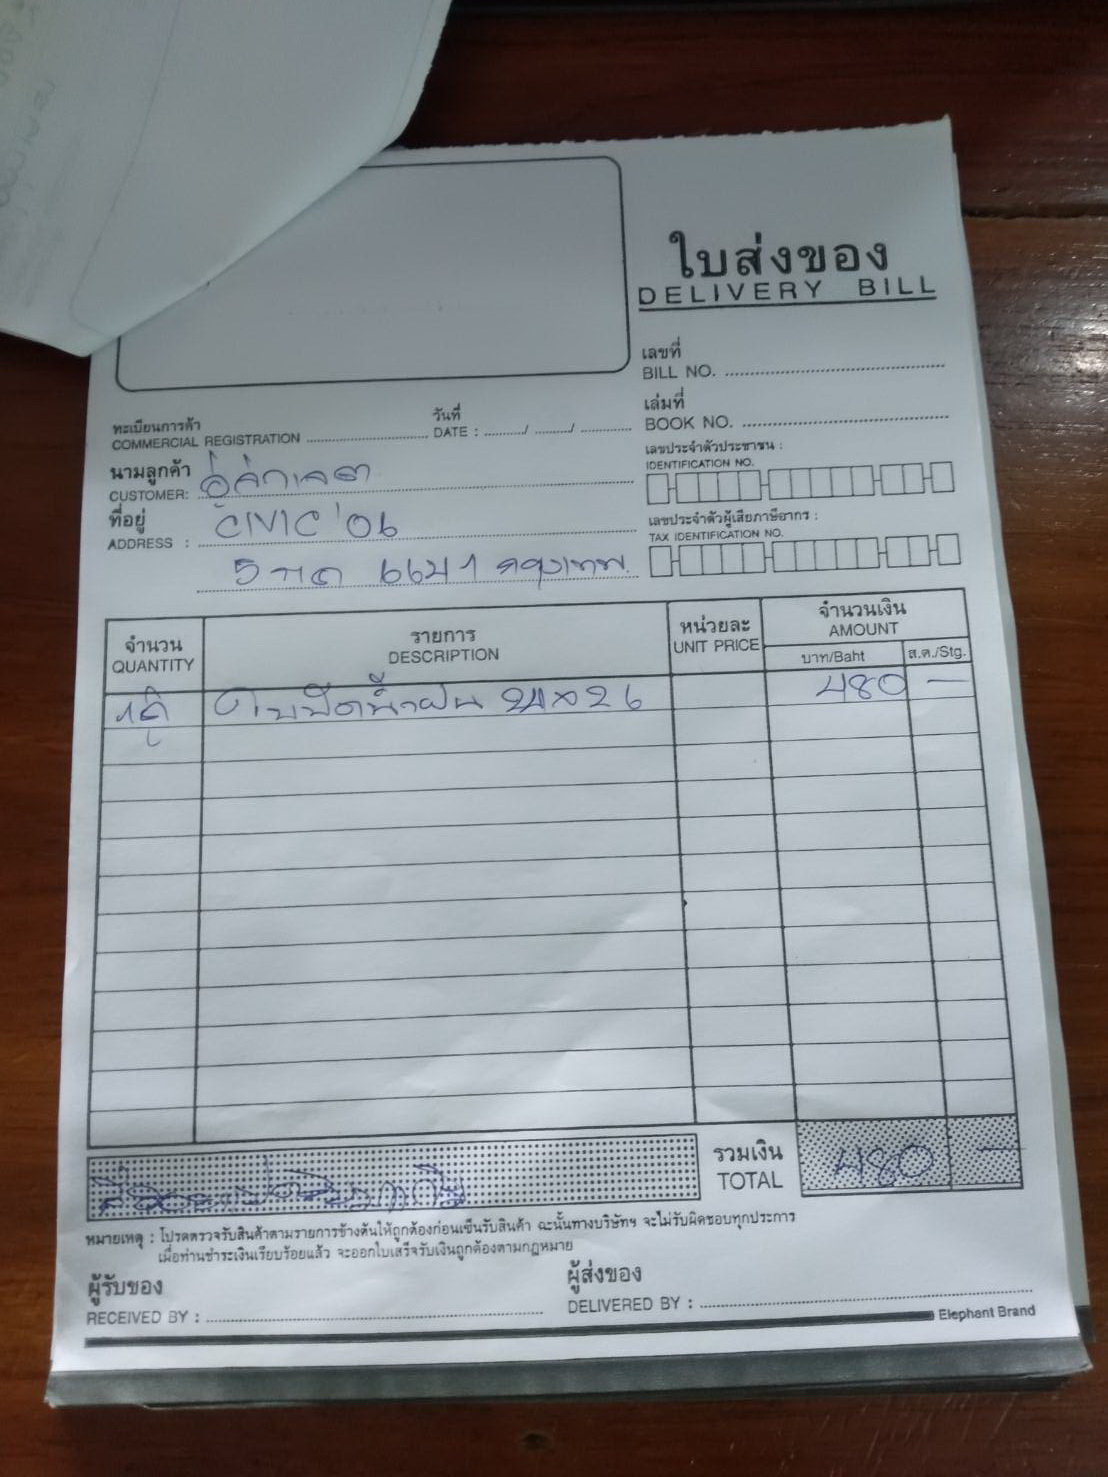 ใบส่งของ
DELIVERY BILL
เลขที่
BILL NO.
เล่มที่
BOOK NO.
ทะเบียนการค้า
COMMERCIAL REGISTRATION
วันที่
DATE : / /
เลขประจำตัวประชาชน :
IDENTIFICATION NO.
นามลูกค้า
CUSTOMER: อู่ค่าเจตา
ที่อยู่
ADDRESS : CIVIC '06
เลขประจำตัวผู้เสียภาษีอากร :
TAX IDENTIFICATION NO.
5 กด 6621 กรุงเทพ.
จำนวน
QUANTITY
รายการ
DESCRIPTION
หน่วยละ
UNIT PRICE
จำนวนเงิน
AMOUNT
บาท/Baht
ส.ต./Stg.
1 คู่ ใบปัดน้ำฝน 24x26 480 —
รวมเงิน
TOTAL 480 —
สี่ร้อยแปดสิบบาท
หมายเหตุ : โปรดตรวจรับสินค้าตามรายการข้างต้นให้ถูกต้องก่อนเซ็นรับสินค้า ฉะนั้นทางบริษัทฯ จะไม่รับผิดชอบทุกประการ
เมื่อท่านชำระเงินเรียบร้อยแล้ว จะออกใบเสร็จรับเงินถูกต้องตามกฎหมาย
ผู้รับของ
RECEIVED BY :
ผู้ส่งของ
DELIVERED BY :
Elephant Brand